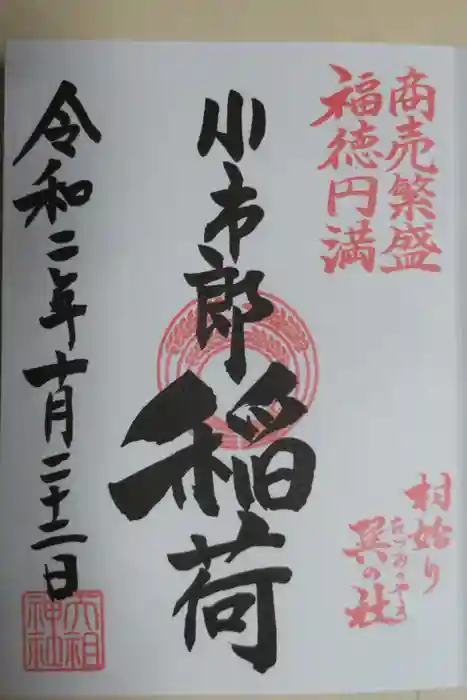 商売繁盛
福徳円満
村始り
巽の社
たつみのやしろ
小市郎稲荷
令和二年十月二十二日
六相
神社